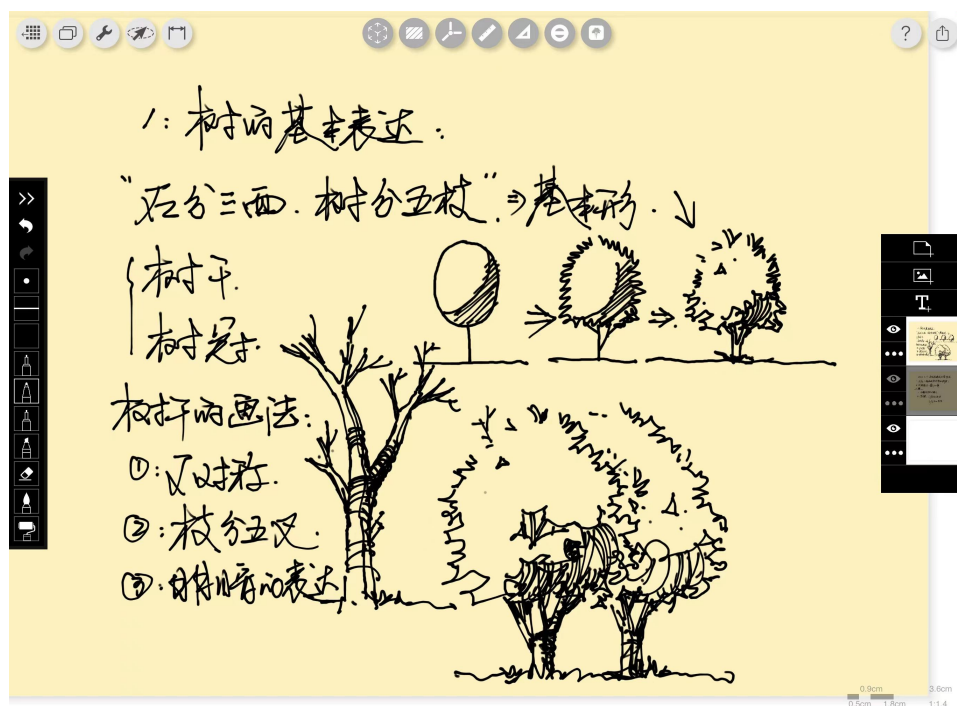 1: 树的基本表达.
“石分三面. 树分五枝”⇒基本形.
树干.
树冠.
树杆的画法:
①: 反对称.
②: 枝分五叉.
③: 明暗的表达
?
T
0.9cm 3.6cm
0.5cm 1.8cm 1:1.4